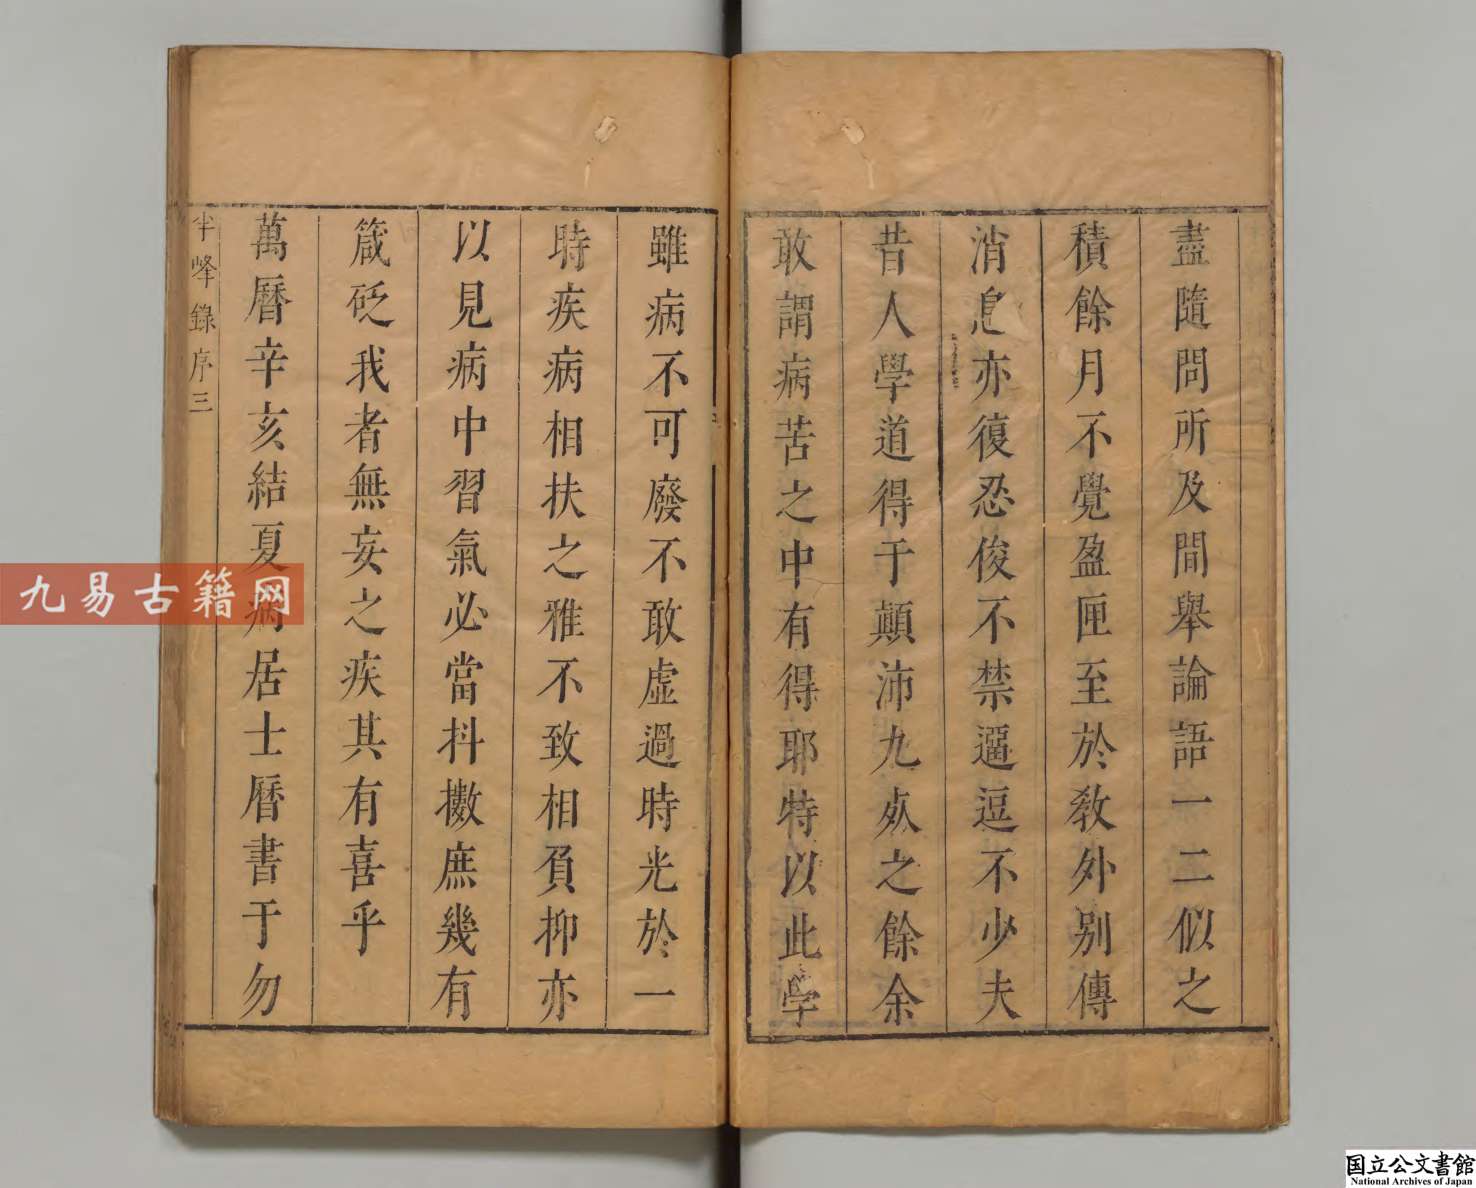 盡隨問所及間舉論語一二似之
積餘月不覺盈匣至於敎外別傳
消息亦復忍俊不禁逼逗不少夫
昔人學道得于顛沛九死之餘余
敢謂病苦之中有得耶特以此學
雖病不可廢不敢虛過時光於一
時疾病相扶之雅不致相負抑亦
以見病中習氣必當抖擻庶幾有
箴砭我者無妄之疾其有喜乎
萬曆辛亥結夏病居士曆書于勿
半峰錄序 三
九易古籍网
国立公文書館
National Archives of Japan